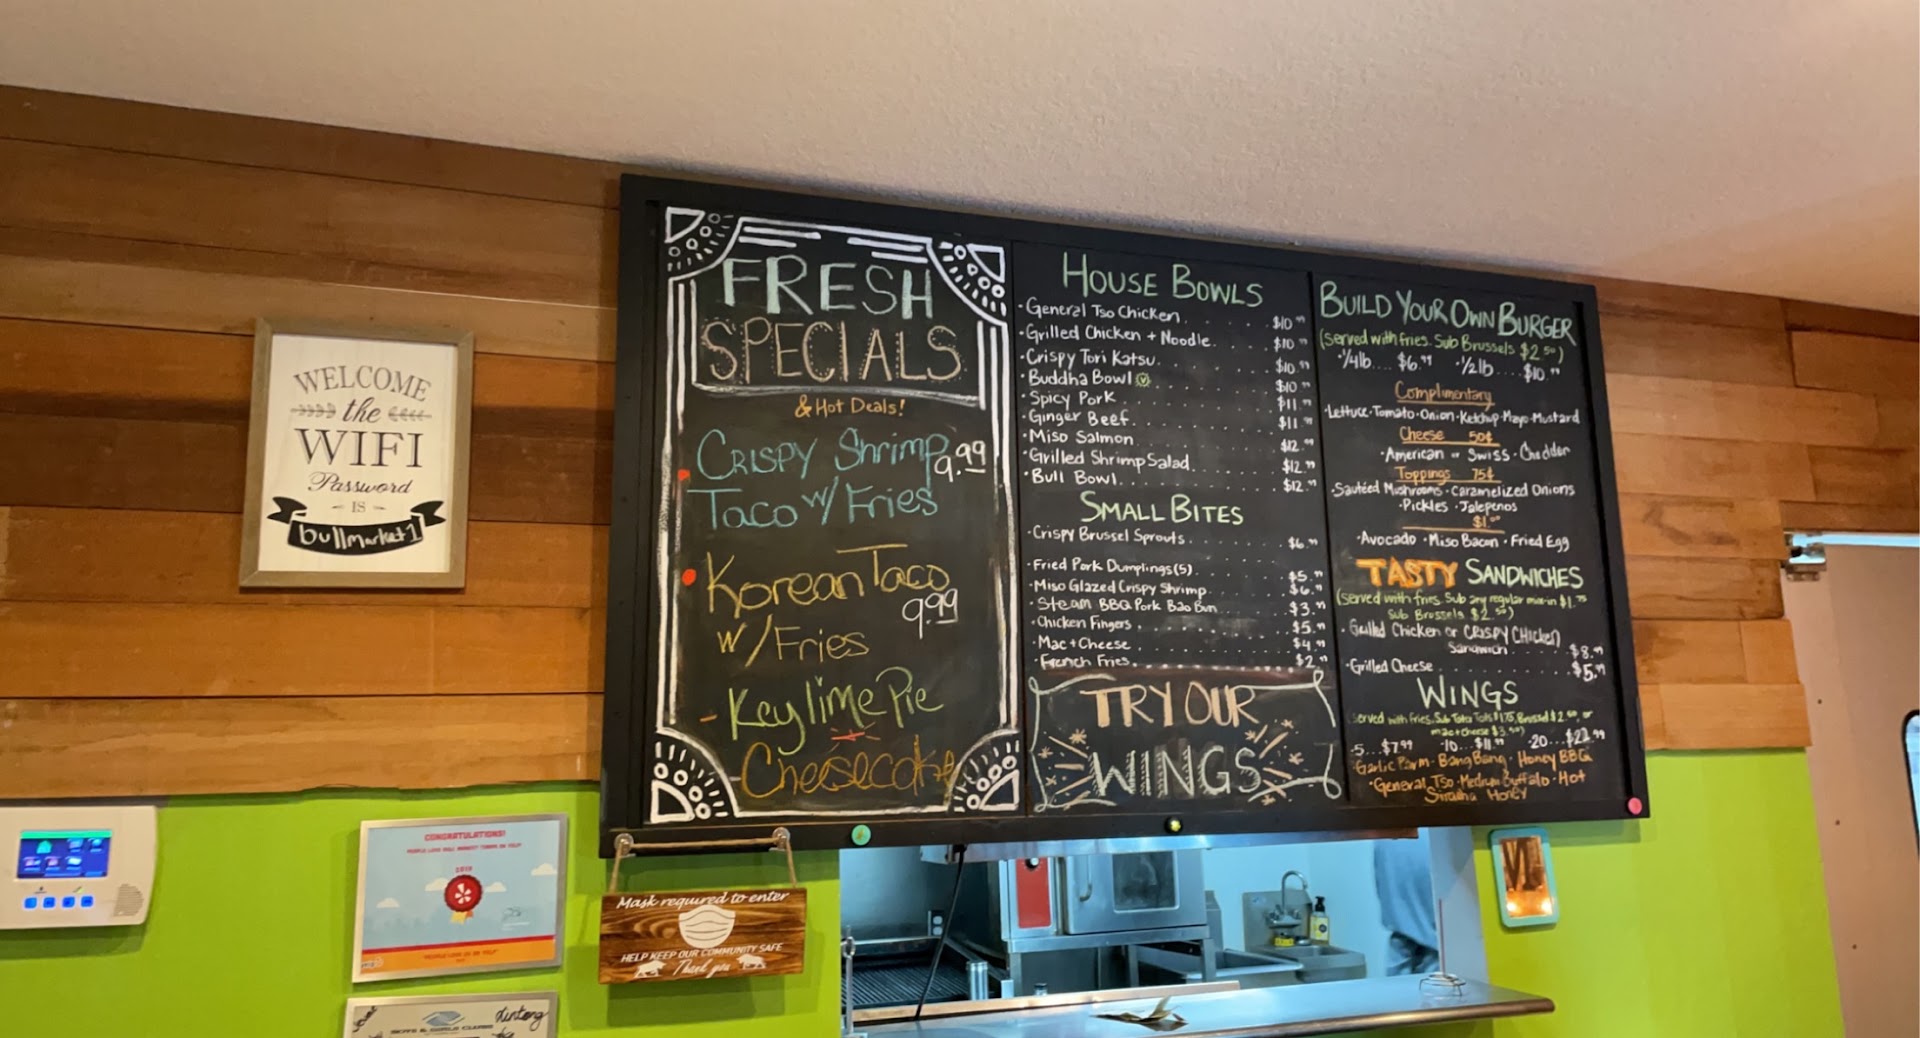 WELCOME
the
WIFI
Password
IS
bullmarket1
FRESH
SPECIALS
& Hot Deals!
CRISPY Shrimp 9.99
Taco w/ Fries
Korean Taco
9.99
w/ Fries
- Key lime Pie
- Cheesecake
HOUSE BOWLS
· General Tso Chicken $10.99
· Grilled Chicken + Noodle $10.99
· Crispy Tori Katsu $10.99
· Buddha Bowl V $10.99
· Spicy Pork $11.99
· Ginger Beef $11.99
· Miso Salmon $12.99
· Grilled Shrimp Salad $12.99
· Bull Bowl $12.99
SMALL BITES
· Crispy Brussel Sprouts $6.99
· Fried Pork Dumplings (5) $5.99
· Miso Glazed Crispy Shrimp $6.99
· Steam BBQ Pork Bao Bun $3.99
· Chicken Fingers $5.99
· Mac + Cheese $4.99
· French Fries $2.99
TRY OUR
WINGS
BUILD YOUR OWN BURGER
(served with fries. Sub Brussels $2.50)
· 1/4lb.... $6.99 · 1/2lb .... $10.99
Complimentary
· Lettuce · Tomato · Onion · Ketchup · Mayo · Mustard
Cheese 50¢
· American or Swiss · Cheddar
Toppings 75¢
· Sautéed Mushrooms · Caramelized Onions
· Pickles · Jalepenos
$1.00
· Avocado · Miso Bacon · Fried Egg
TASTY SANDWICHES
(served with fries. Sub any regular mix-in $1.75
Sub Brussels $2.50)
· Grilled Chicken or CRISPY CHicken
Sandwich $8.99
· Grilled Cheese $5.99
WINGS
(served with fries. Sub Tater Tots $1.75, Brussel $2.50, or
mac+cheese $3.50)
· 5... $7.99 · 10... $11.99 · 20... $22.99
· Garlic Parm · Bang Bang · Honey BBQ
· General Tso · Medium Buffalo · Hot
Siracha Honey
CONGRATULATIONS!
2019
"PEOPLE LOVE US ON YELP"
Mask required to enter
HELP KEEP OUR COMMUNITY SAFE
Thank you
BOYS & GIRLS CLUBS